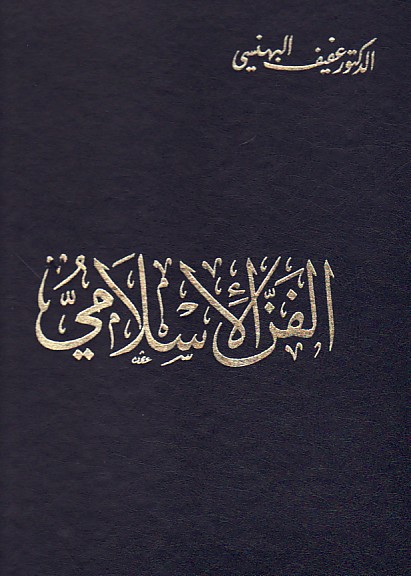 الدكتور عفيف البهنسي
الفنّ الإسْلاَميُّ